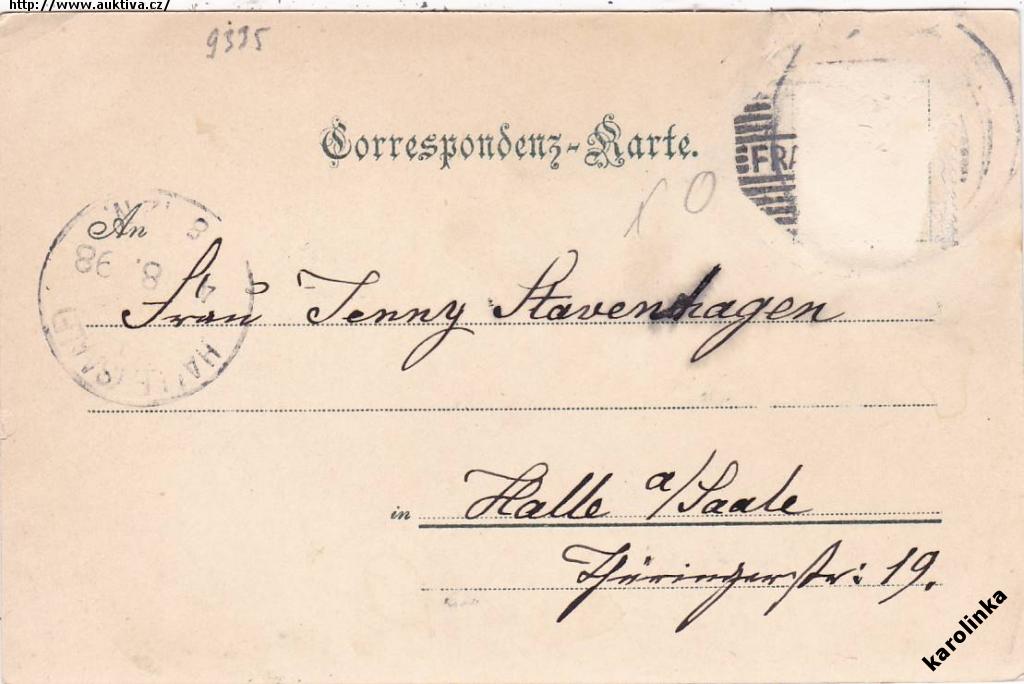 http://www.auktiva.cz/
9335
Correspondenz-Karte.
FRA
x O
An
8 N
4 8. 98
HALLE (SAALE)
Frau Jenny Stavenhagen
in Halle a/Saale
Thüringerstr: 19.
karolinka